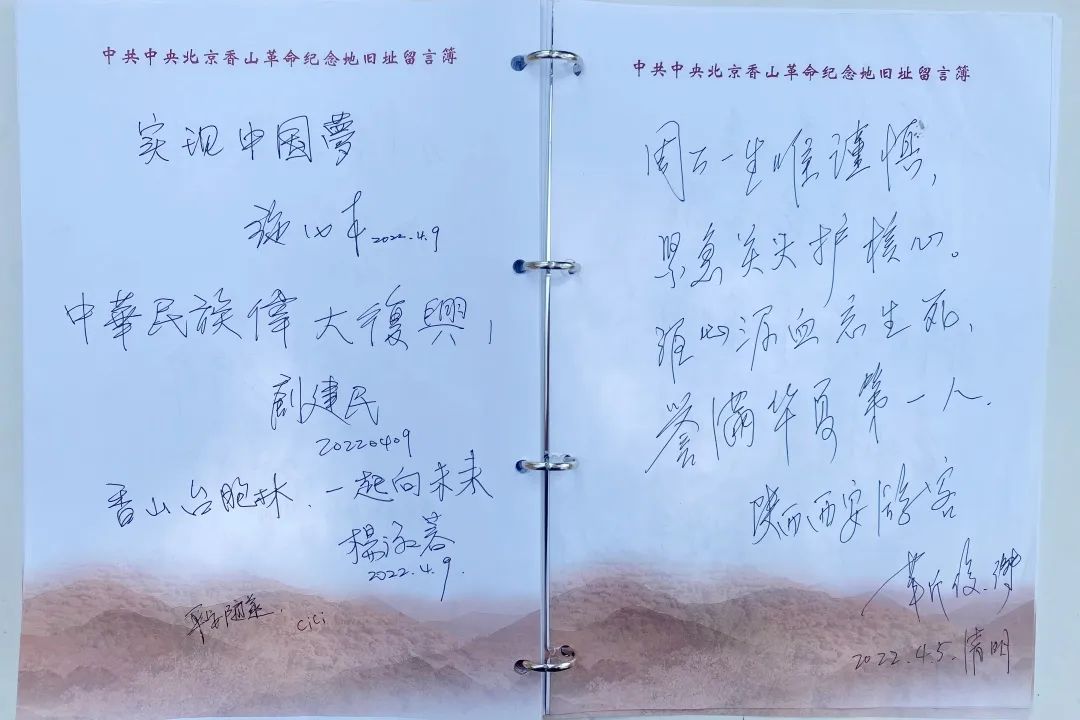 中共中央北京香山革命纪念地旧址留言簿
实现中国夢
2022.4.9
中華民族偉大復興！
劉建民
20220409
香山台胞林、一起向未来
楊
2022.4.9.
平安
cici
中共中央北京香山革命纪念地旧址留言簿
周公一生唯謹慎，
紧急关头护核心。
沥血忘生死，
誉满华夏第一人.
陕西西安游客
靳俊
2022.4.5.清明